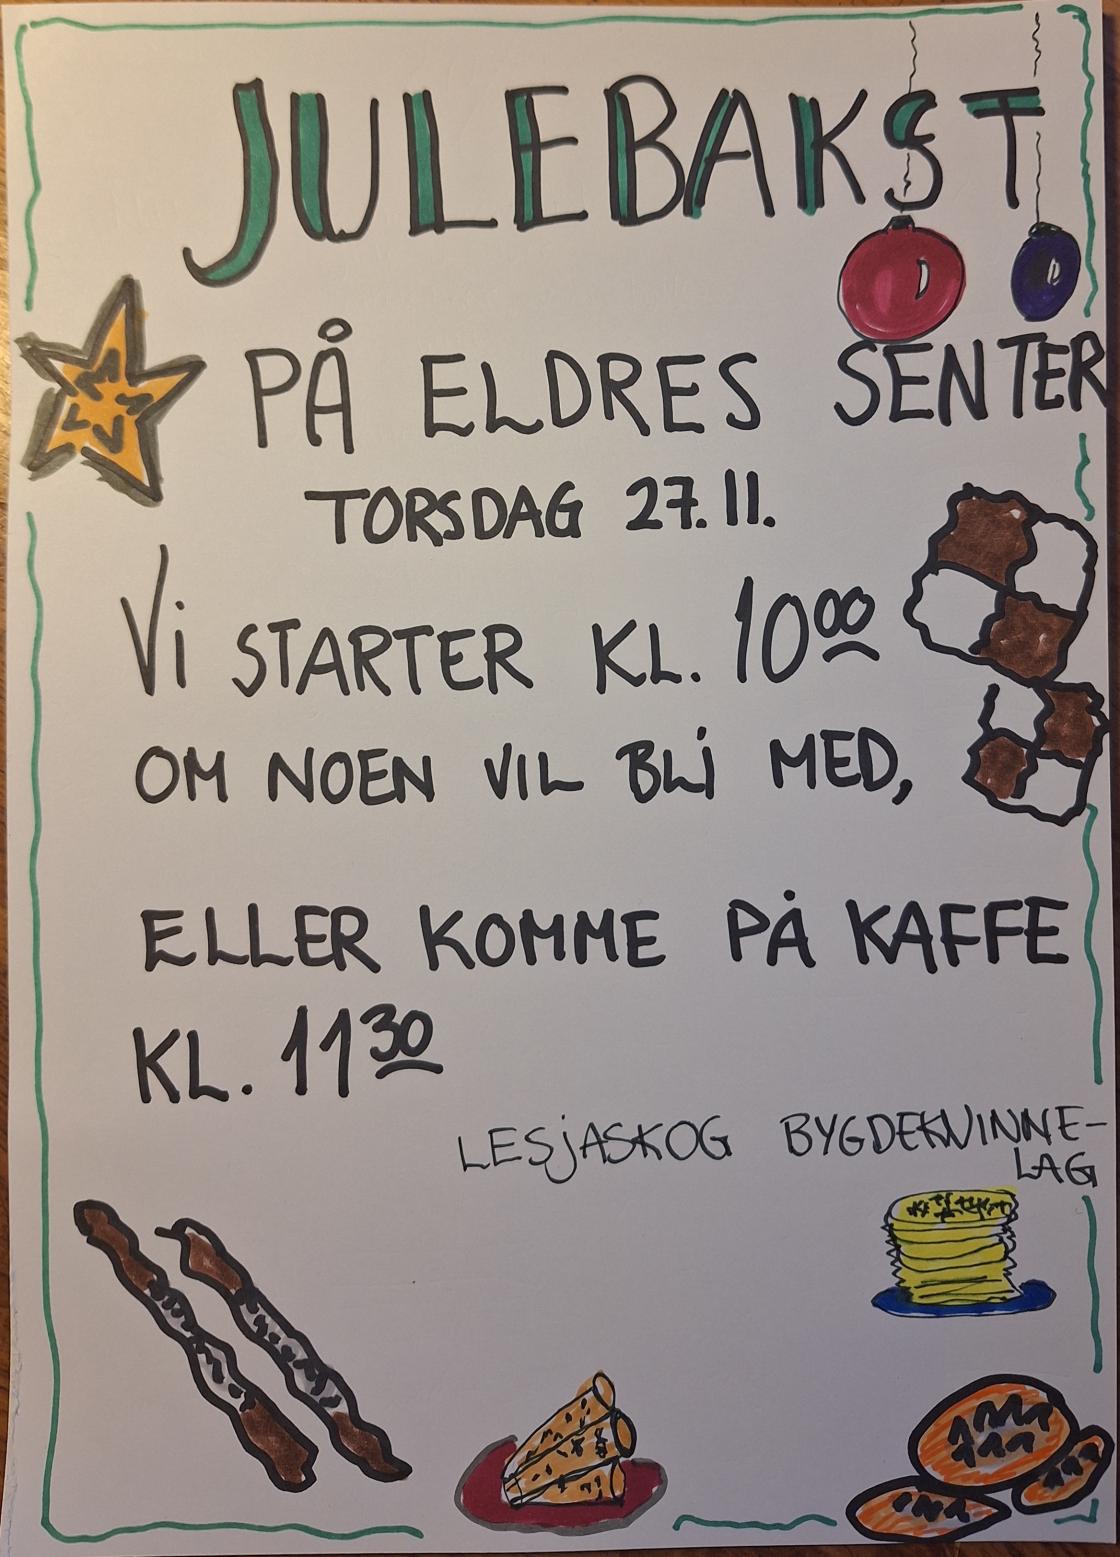 JULEBAKST
PÅ ELDRES SENTER
TORSDAG 27.11.
Vi STARTER KL. 10⁰⁰
OM NOEN VIL BLi MED,
ELLER KOMME PÅ KAFFE
KL. 11³⁰
LESjASKOG BYGDEKVINNE-
LAG